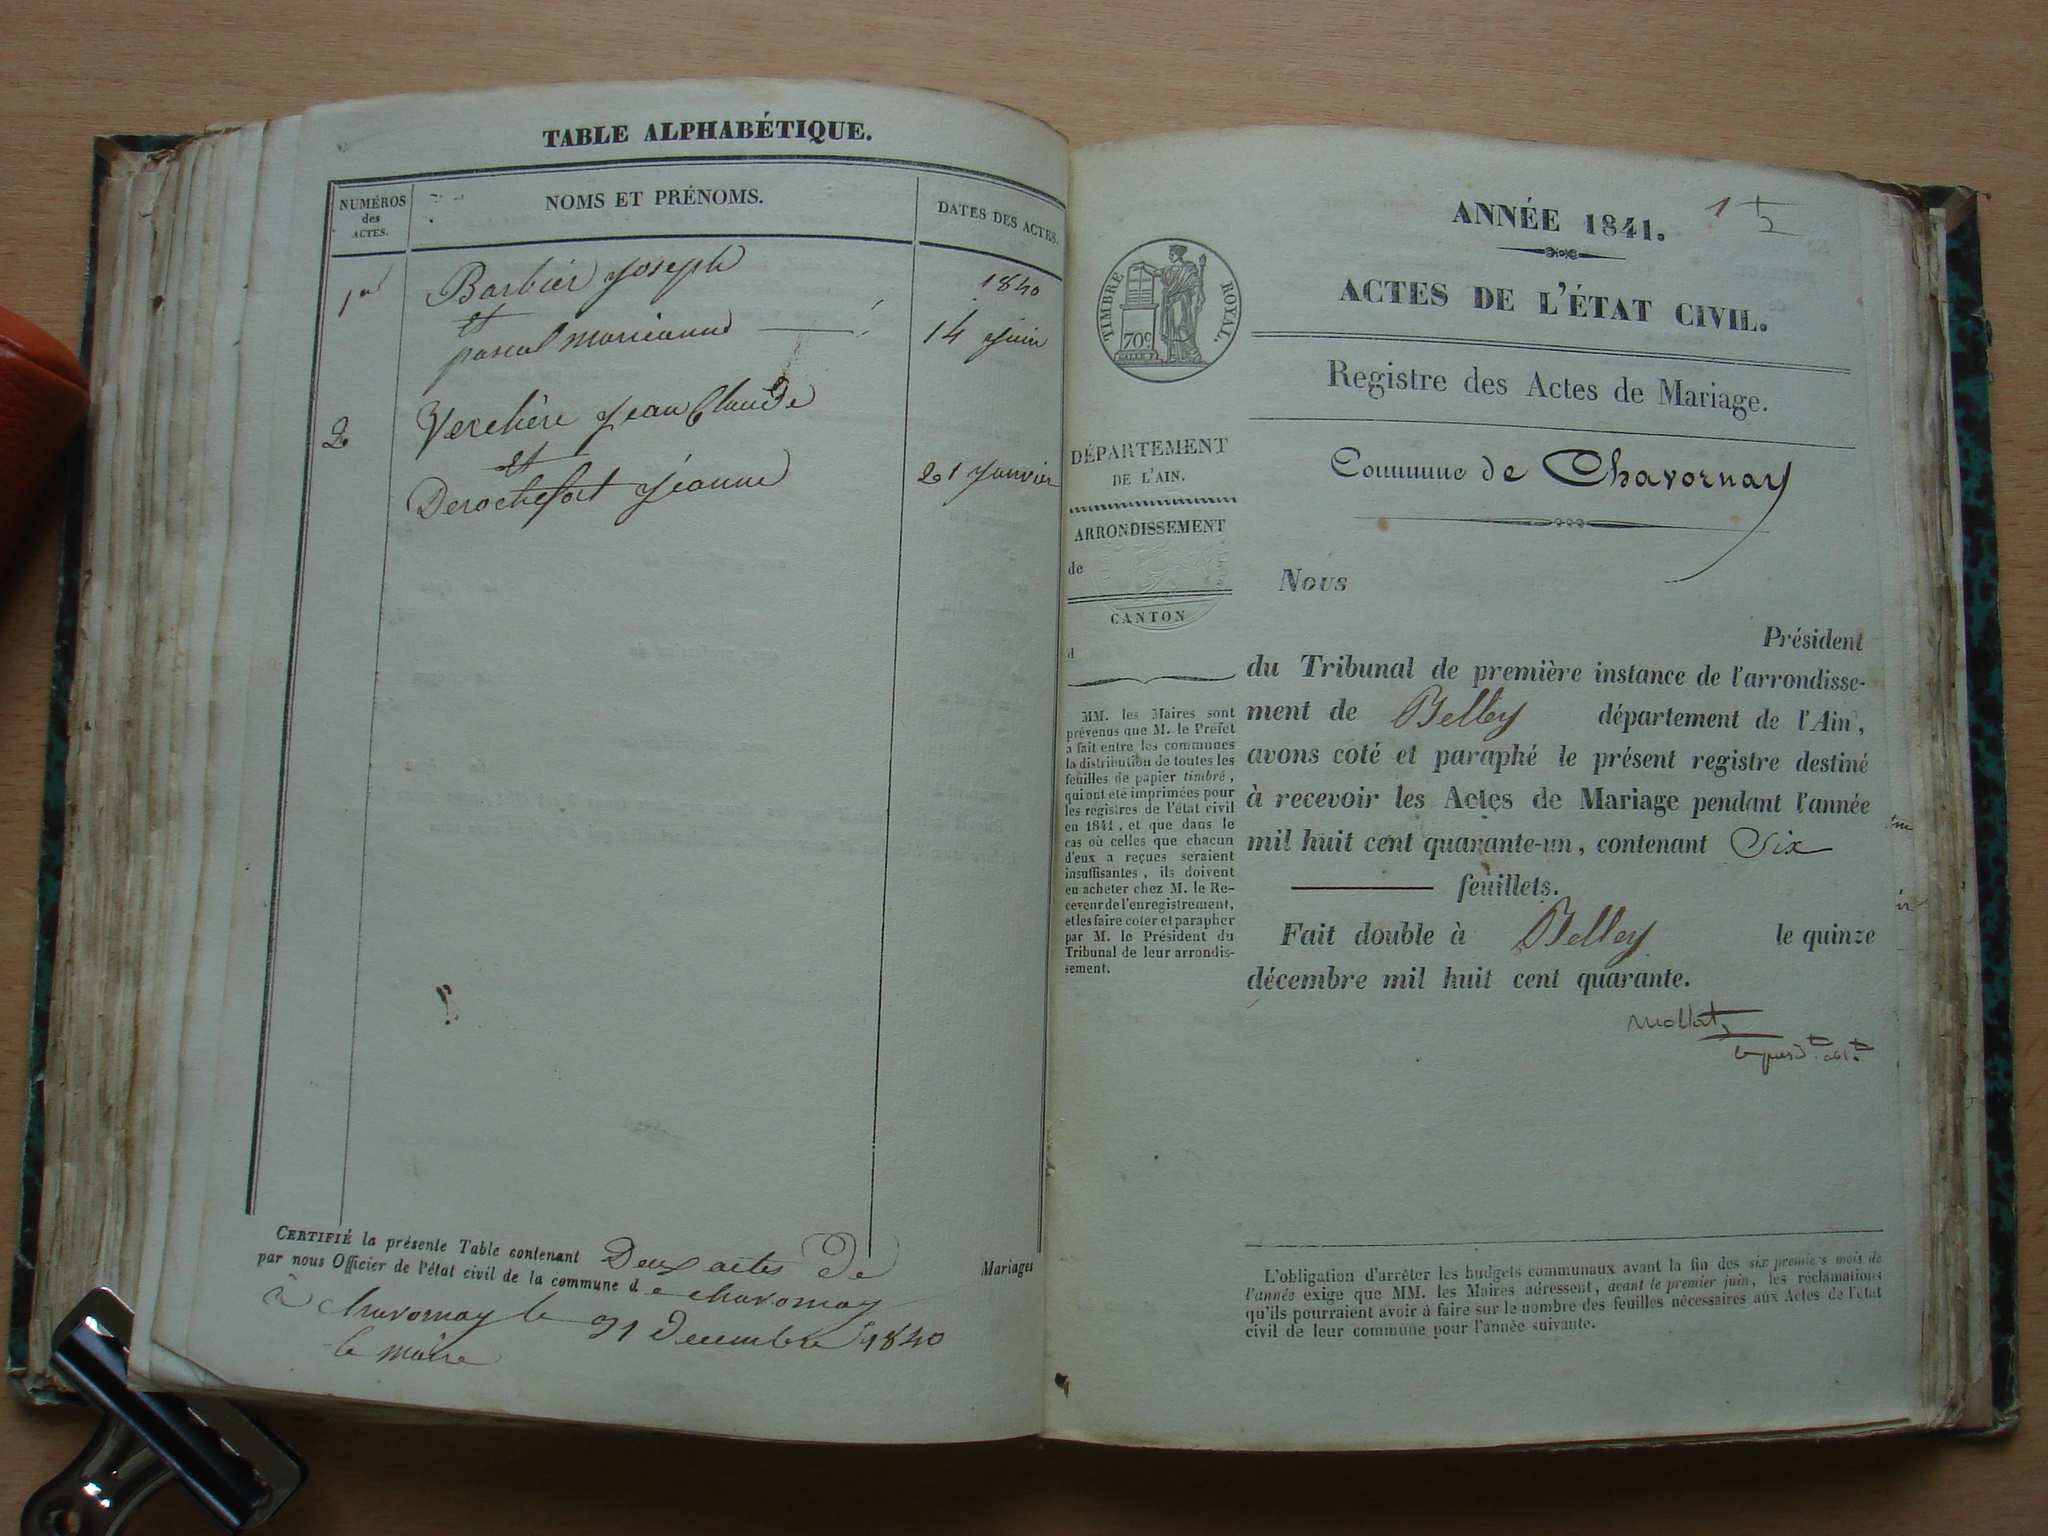 TABLE ALPHABÉTIQUE.
NUMÉROS
des
ACTES.
NOMS ET PRÉNOMS.
DATES DES ACTES.
1er
Barbier Joseph
1840
et
pascal marianne
14 Juin
2
Verchère Jean Claude
et
Derochefort Jeanne
21 Janvier
CERTIFIÉ la présente Table contenant Deux actes De Mariages
par nous Officier de l'état civil de la commune d e chavornay
à chavornay le 31 Decembre 1840
le maire
ANNÉE 1841.
ACTES DE L'ÉTAT CIVIL.
TIMBRE ROYAL.
70c
Registre des Actes de Mariage.
Commune de Chavornay
DÉPARTEMENT
DE L'AIN.
ARRONDISSEMENT
de
CANTON
d
MM. les Maires sont
prévenus que M. le Préfet
a fait entre les communes
la distribution de toutes les
feuilles de papier timbré,
qui ont été imprimées pour
les registres de l'état civil
en 1841, et que dans le
cas où celles que chacun
d'eux a reçues seraient
insuffisantes, ils doivent
en acheter chez M. le Re-
ceveur de l'enregistrement,
et les faire coter et parapher
par M. le Président du
Tribunal de leur arrondis-
sement.
Nous
Président
du Tribunal de première instance de l'arrondisse-
ment de Belley département de l'Ain,
avons coté et paraphé le présent registre destiné
à recevoir les Actes de Mariage pendant l'année
mil huit cent quarante-un, contenant Six
feuillets.
Fait double à Belley le quinze
décembre mil huit cent quarante.
L'obligation d'arrêter les budgets communaux avant la fin des six premiers mois de
l'année exige que MM. les Maires adressent, avant le premier juin, les réclamations
qu'ils pourraient avoir à faire sur le nombre des feuilles nécessaires aux Actes de l'état
civil de leur commune pour l'année suivante.